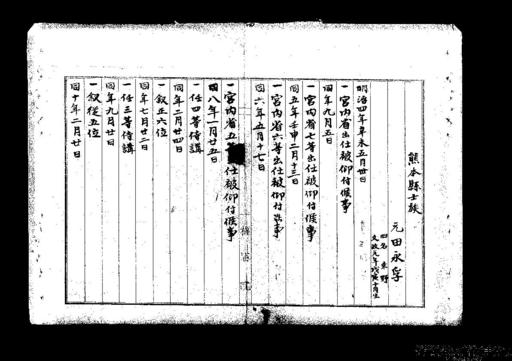 熊本縣士族
元田永孚
旧名 東野
文政元年戊寅十月生
明治四年辛未五月卅日
一宮内省出仕被仰付候事
同年九月五日
一宮内省七等出仕被仰付候事
同五年壬申二月十三日
一宮内省六等出仕被仰付候事
同六年五月十七日
一宮内省五等出仕被仰付候事
同八年一月廿五日
一任四等侍講
同年二月廿四日
一叙正六位
同年七月廿二日
一任三等侍講
同年九月廿日
一叙從五位
同十年二月廿日